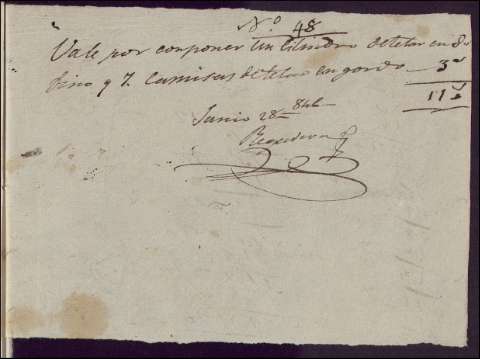 N.º 48
Vale por conponer un Cilindro de telar en 8 r
fino y 7. Camisas de telar en gordo 3 r
11 r
Junio 28 de 846